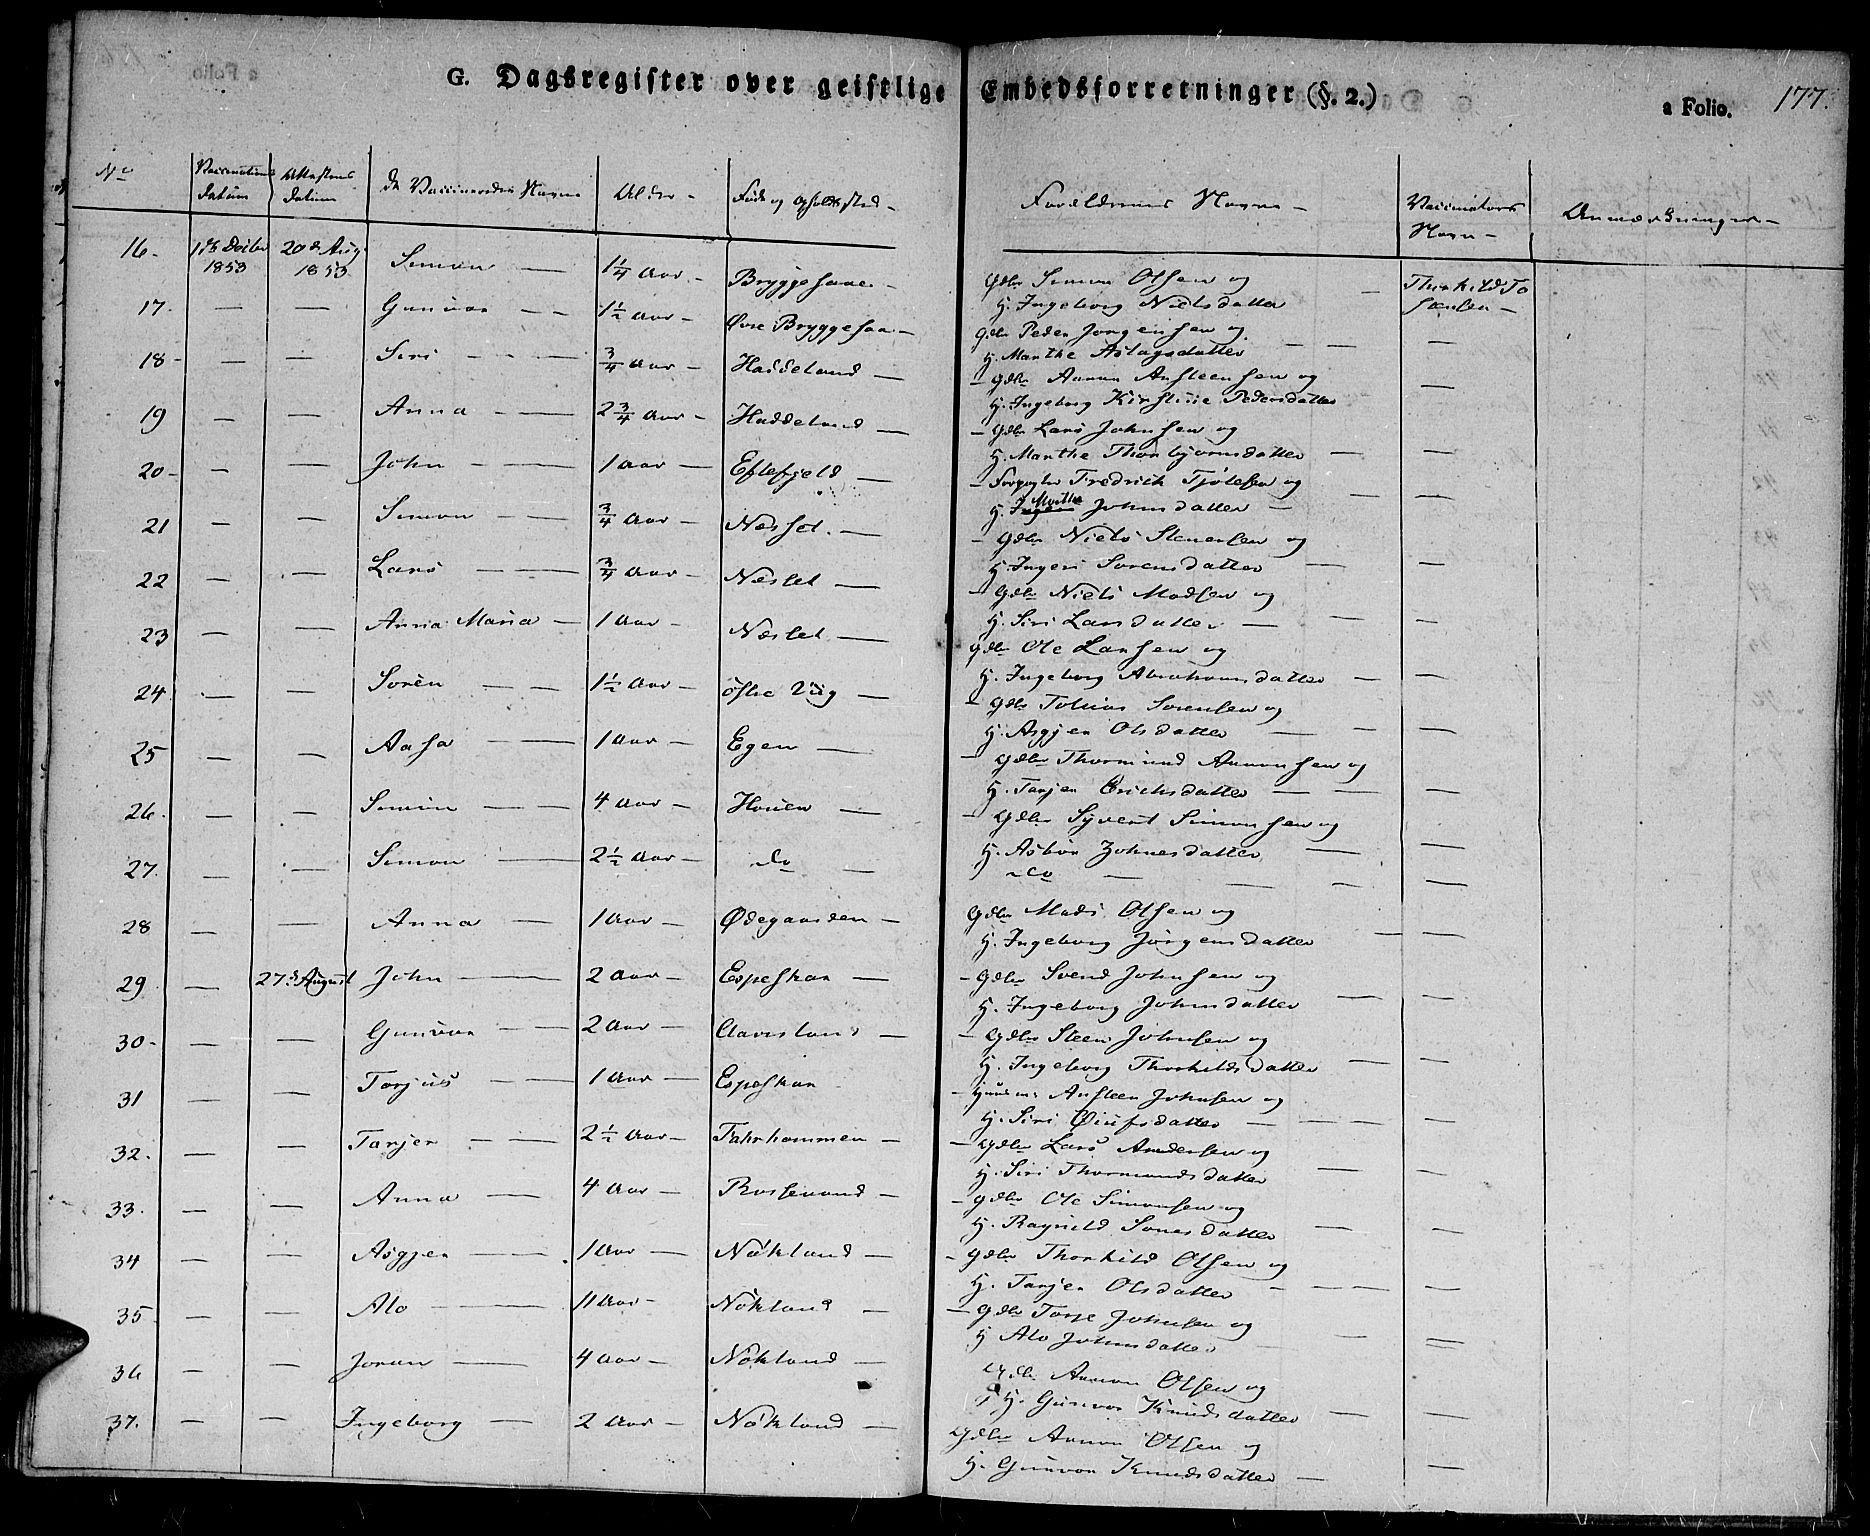 G. Dagsregister over geistlige Embedsforretninger (§. 2.)
a Folio. 177.
No Vaccinations Datum Attestens Datum de Vaccineredes Navne Alder Føde og Opholdssted Forældrenes Navne Vaccinators Navn Anmærkninger
16. 20de Aug. 1853 1853 Simon 1 1/4 Aar Bryggesaae Gdbr Simon Olsen og
H. Ingeborg Nielsdatter Thorkild
17. — — Gunvor 1 1/2 Aar Øvre Bryggesaa Gdbr Peder Jørgensen og
H. Marthe Aslagsdatter —
18 — — Siri 3/4 Aar Haddeland Gdbr Aanon Ansteensen og
H. Ingeborg Kirstine Pedersdatter —
19 — — Anna 2 3/4 Aar Haddeland Gdbr Lars Johnsen og
H. Marthe Thorbjørnsdatter —
20 — — John 1 Aar Eftefjeld Forpagter Fredrik Tjølsen og
H. Marthe Johnsdatter —
21 — — Simon 3/4 Aar Næset. Gdbr Niels Stenersen og
H. Ingeri Sørensdatter —
22 — — Lars 3/4 Aar Næslet Gdbr Niels Madsen og
H. Siri Larsdatter —
23 — — Anna Maria 1 Aar Næslet Gdbr Ole Larsen og
H. Ingeborg Abrahamsdatter —
24. — — Søren 1 1/2 Aar østre Vüg Gdbr Tobias Sørensen og
H. Asgjer Olsdatter —
25 — — Aasa 1 Aar Egen Gdbr Thormund Aanonsen og
H. Tarjer Erichsdatter —
26. — — Simon 4 Aar Houen Gdbr Syvert Simonsen og
H. Asbør Johnesdatter —
27. — — Simon 2 1/2 Aar do do —
28 — — Anna 1 Aar Ødegaarden Gdbr Mads Olsen og
H. Ingeborg Jørgensdatter —
29 — 27de August John 2 Aar Espeskar Gdbr Svend Johnsen og
H. Ingeborg Johnsdatter —
30 — — Gunvor 2 Aar Aavesland Gdbr Steen Johnsen og
H. Ingeborg Thorkildsdatter —
31 — — Torjus 1 Aar Espeskar Huusm. Ansteen Johnsen og
H. Siri Øiufsdatter —
32. — — Tarjer 2 1/2 Aar Fahrhommen Gdbr Lars Andersen og
H. Siri Thormundsdatter —
33. — — Anna 4 Aar Rossevand Gdbr Ole Simonsen og
H. Ragnild Sonesdatter —
34 — — Asgjer 1 Aar Nökland Gdbr Thorkild Olsen og
H. Tarjer Olsdatter —
35 — — Alo 11 Aar Nökland Gdbr Torje Johnsen og
H Alo Johnsdatter —
36 — — Joran 4 Aar Nökland Gdbr Aanon Olsen og
H. Gunvor Knudsdatter —
37. — — Ingeborg 2 Aar Nökland Gdbr Aanon Olsen og
H. Gunvor Knudsdatter —